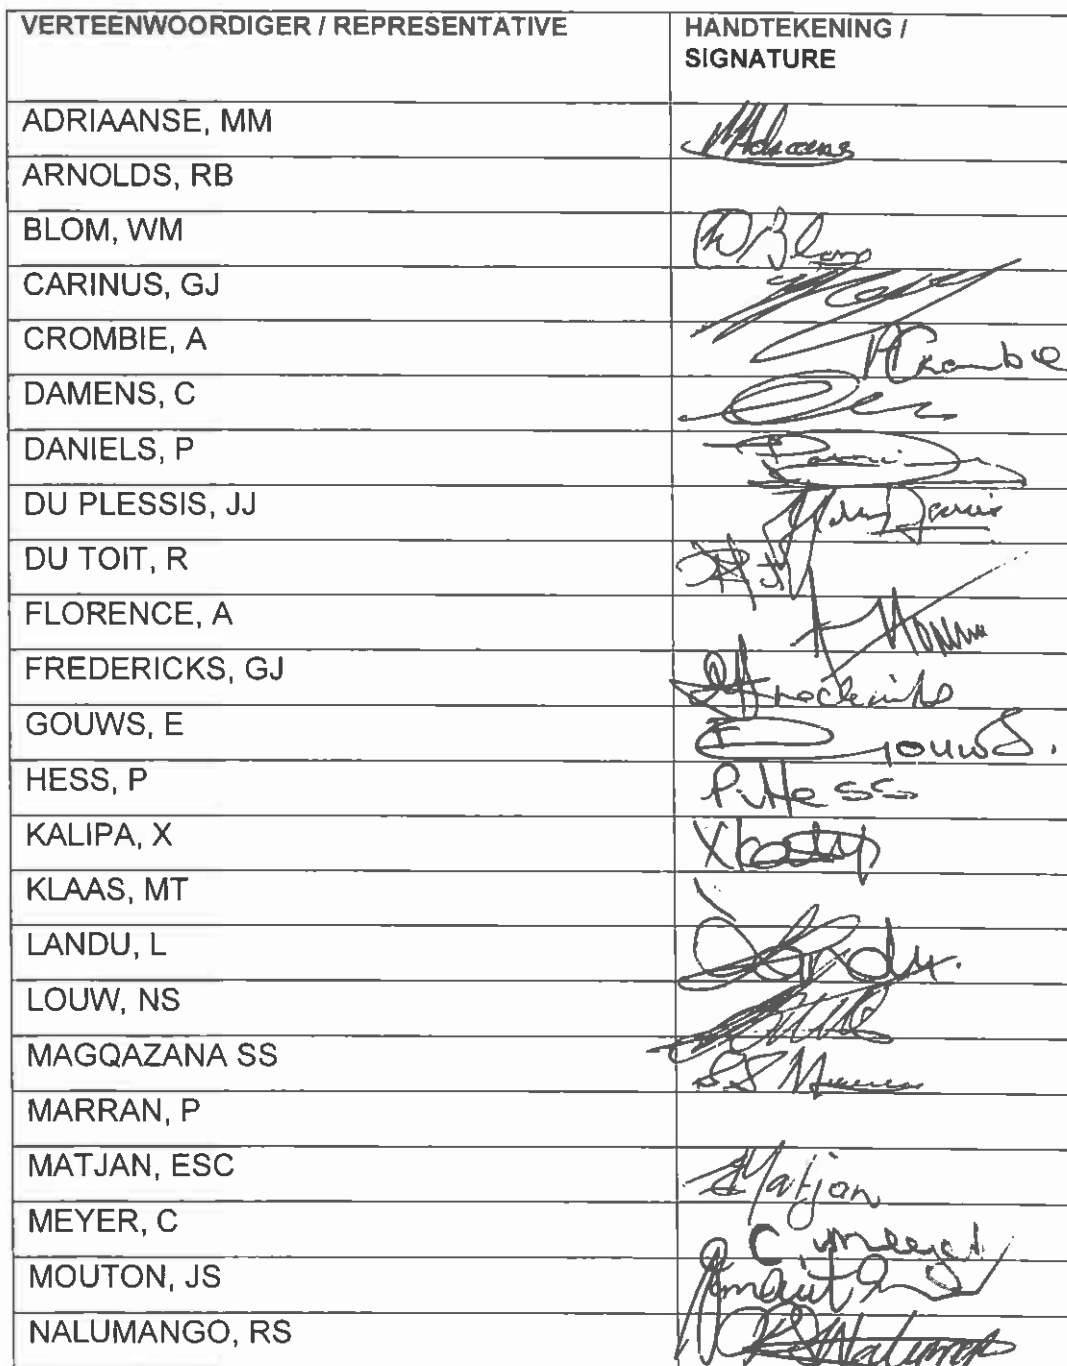 VERTEENWOORDIGER / REPRESENTATIVE HANDTEKENING /
SIGNATURE
ADRIAANSE, MM
ARNOLDS, RB
BLOM, WM WBlom
CARINUS, GJ
CROMBIE, A ACrombie
DAMENS, C
DANIELS, P
DU PLESSIS, JJ
DU TOIT, R
FLORENCE, A
FREDERICKS, GJ
GOUWS, E E Gouws.
HESS, P P. Hess
KALIPA, X
KLAAS, MT
LANDU, L Landu.
LOUW, NS
MAGQAZANA SS
MARRAN, P
MATJAN, ESC Matjan
MEYER, C C Meyer
MOUTON, JS
NALUMANGO, RS